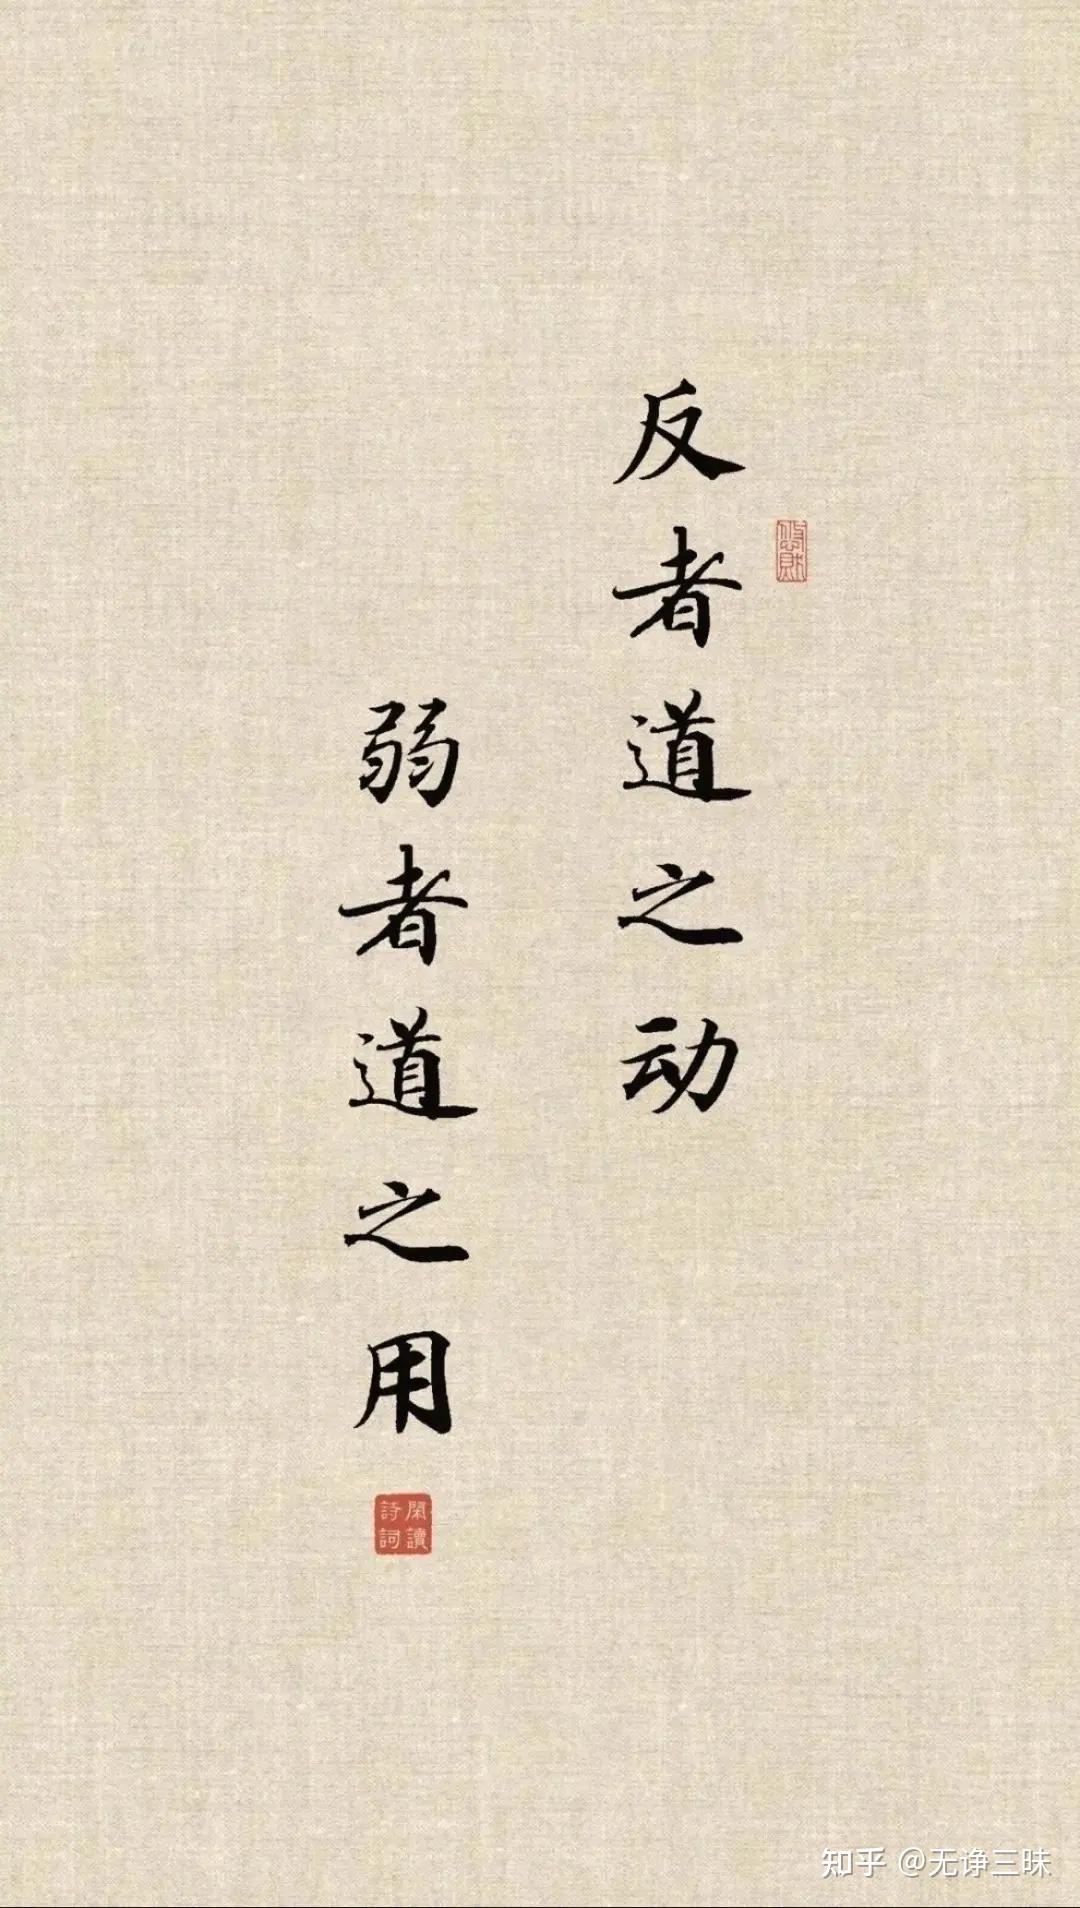 反者道之动
弱者道之用
閑讀
詩詞
知乎 @无诤三昧